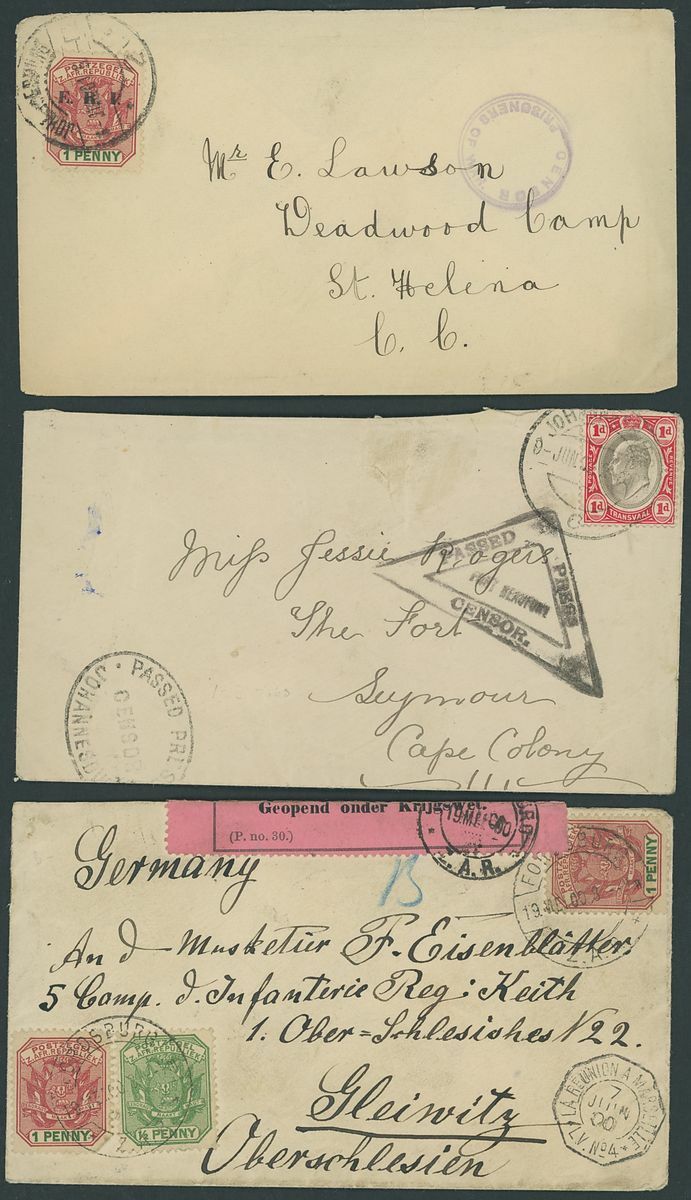 POSTZEGEL
Z. AFR. REPUBLIEK
E. R. I.
1 PENNY
CENSOR
PRISONERS OF
Mr E. Lawson
Deadwood Camp
St. Helena
C. C.
JOHA
9-JUN
1d 1d
POSTAGE POSTAGE
1d TRANSVAAL 1d
PASSED PRESS
FORT BEAUFORT
CENSOR.
Miss Jessie Rogers
The Fort
Seymour
Cape Colony
PASSED PRES
CENSOR
JOHANNES
Geopend onder Krijgswet.
(P. no. 30.)
19 MEI 00
Z. A. R.
Germany
POSTZEGEL
1 PENNY
An d- Musketür F. Eisenblätter.
5 Comp. d. Infanterie Reg: Keith
1. Ober=Schlesishes N22.
Gleiwitz
Oberschlesien
POSTZEGEL
Z. AFR. REPUBLIEK
1 PENNY
POSTZEGEL
Z. AFR. REPUBLIEK
½ PENNY
LA REUNION A MARSEILLE
7
JUIN
00
L.V. No 4